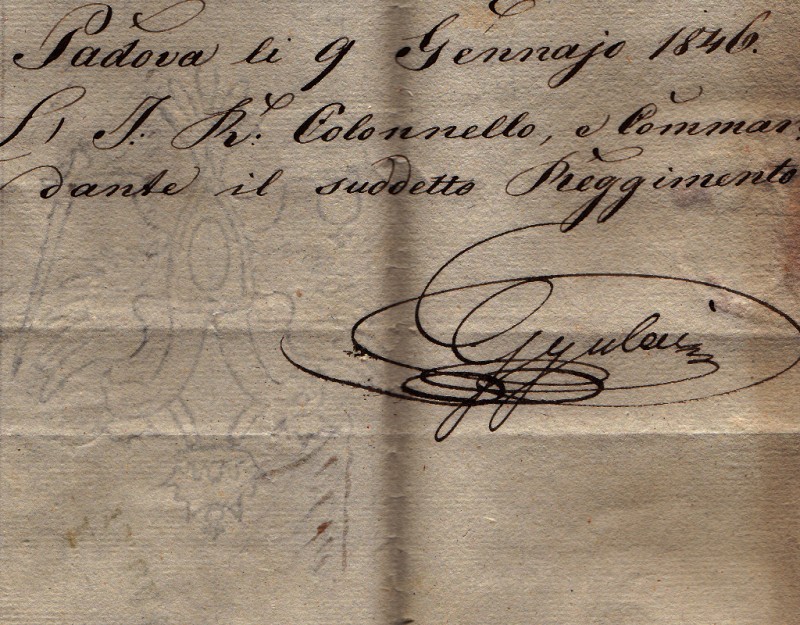 Padova li 9 Gennajo 1846.
L' I. R. Colonnello, e Comman,
dante il suddetto Reggimento
Gyulai